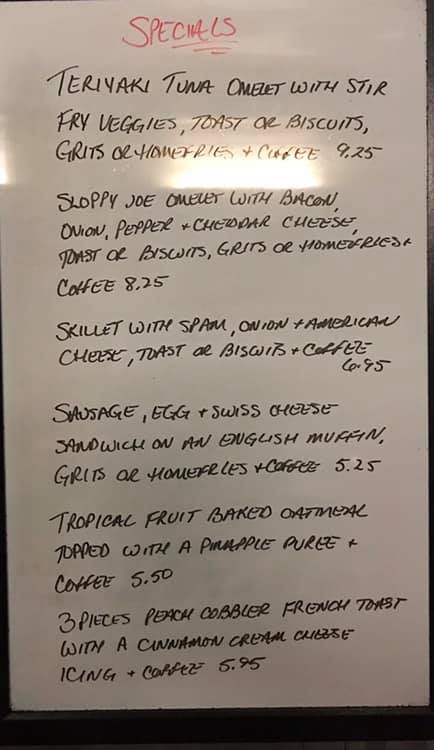 SPECIALS
TERIYAKI TUNA OMELET WITH STIR
FRY VEGGIES, TOAST OR BISCUITS,
GRITS OR HOMEFRIES + COFFEE 9.25
SLOPPY JOE OMELET WITH BACON,
ONION, PEPPER + CHEDDAR CHEESE,
TOAST OR BISCUITS, GRITS OR HOMEFRIES +
COFFEE 8.25
SKILLET WITH SPAM, ONION + AMERICAN
CHEESE, TOAST OR BISCUITS + COFFEE
6.95
SAUSAGE, EGG + SWISS CHEESE
SANDWICH ON AN ENGLISH MUFFIN,
GRITS OR HOMEFRIES + COFFEE 5.25
TROPICAL FRUIT BAKED OATMEAL
TOPPED WITH A PINAPPLE PUREE +
COFFEE 5.50
3 PIECES PEACH COBBLER FRENCH TOAST
WITH A CINNAMON CREAM CHEESE
ICING + COFFEE 5.95